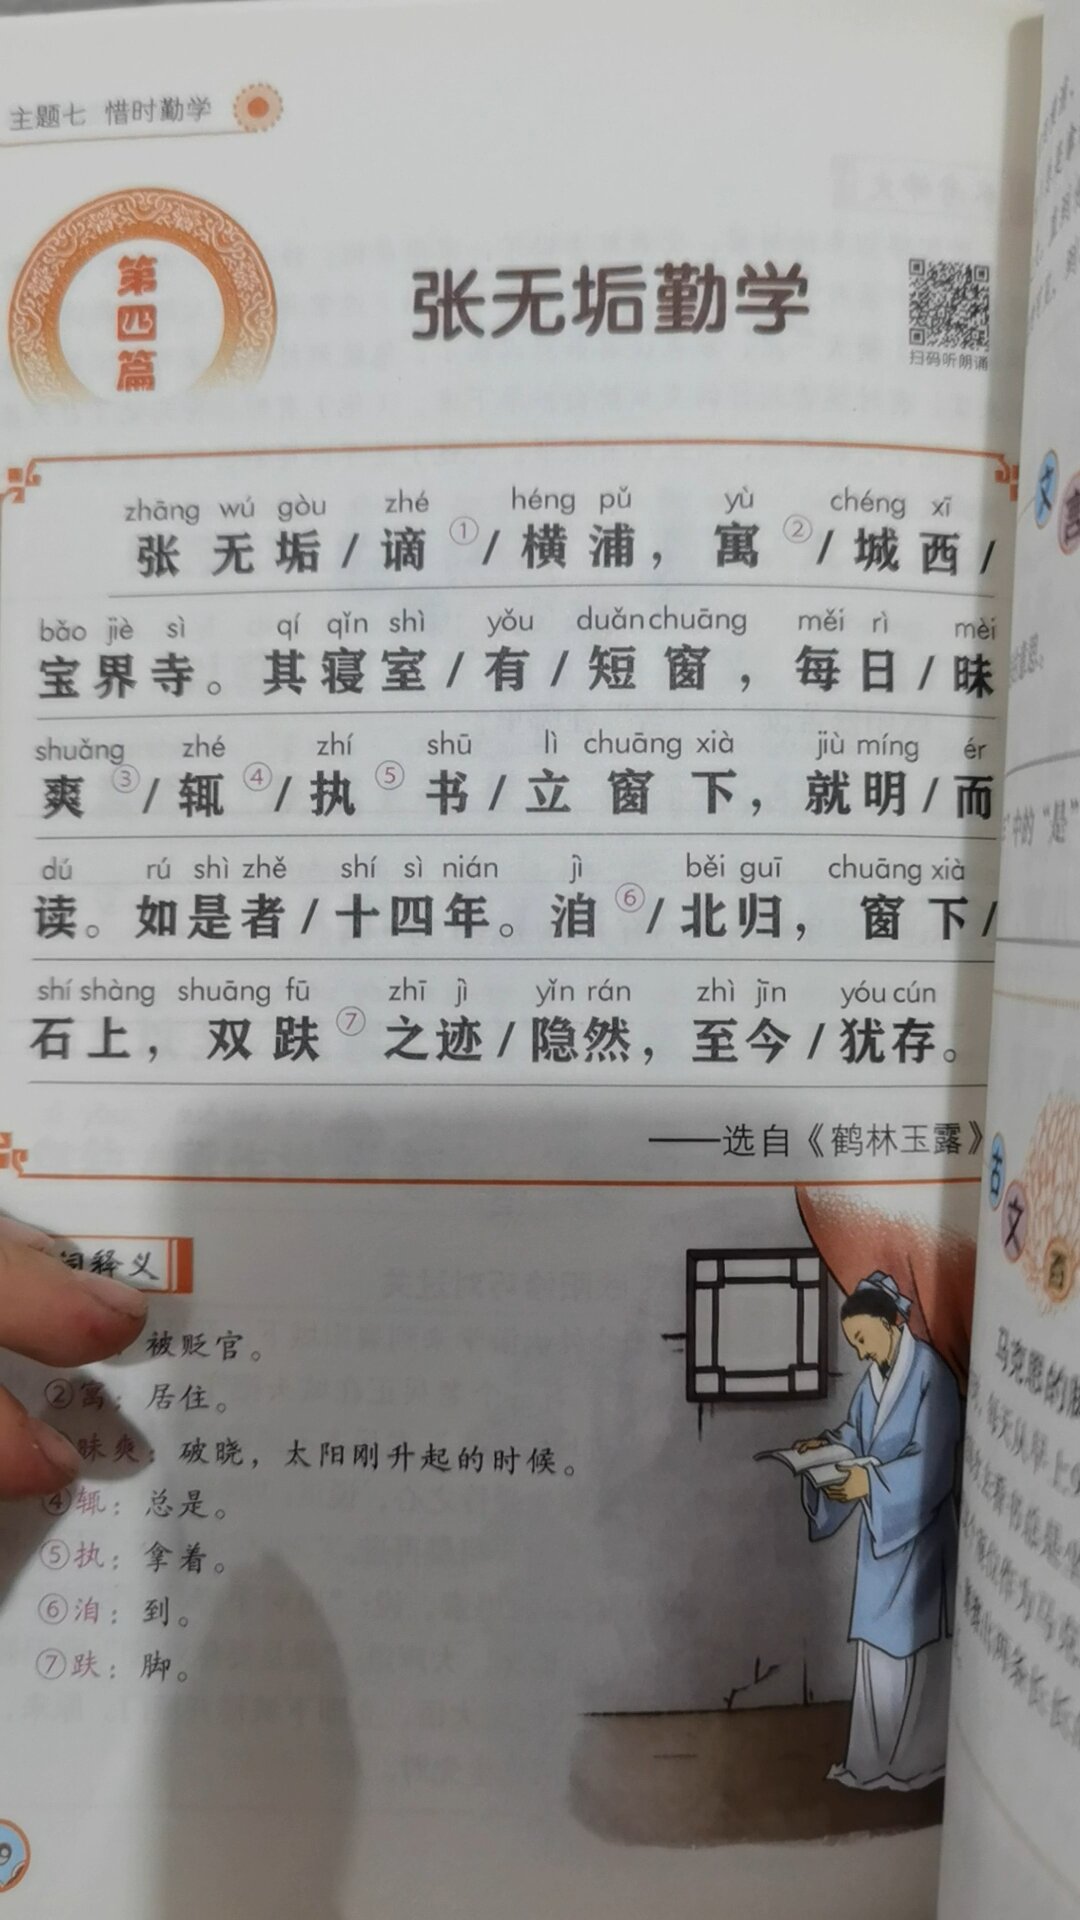 主题七 惜时勤学
第四篇
张无垢勤学
扫码听朗诵
zhāng wú gòu zhé héng pǔ yù chéng xī
张无垢/谪①/横浦，寓②/城西/
bǎo jiè sì qí qǐn shì yǒu duǎn chuāng měi rì mèi
宝界寺。其寝室/有/短窗，每日/昧
shuǎng zhé zhí shū lì chuāng xià jiù míng ér
爽③/辄④/执⑤书/立窗下，就明/而
dú rú shì zhě shí sì nián jì běi guī chuāng xià
读。如是者/十四年。洎⑥/北归，窗下/
shí shàng shuāng fū zhī jì yǐn rán zhì jīn yóu cún
石上，双趺⑦之迹/隐然，至今/犹存。
——选自《鹤林玉露》
词释义
被贬官。
②寓：居住。
昧爽：破晓，太阳刚升起的时候。
④辄：总是。
⑤执：拿着。
⑥洎：到。
⑦趺：脚。
9
文
中的“是”
古
文
马克思的